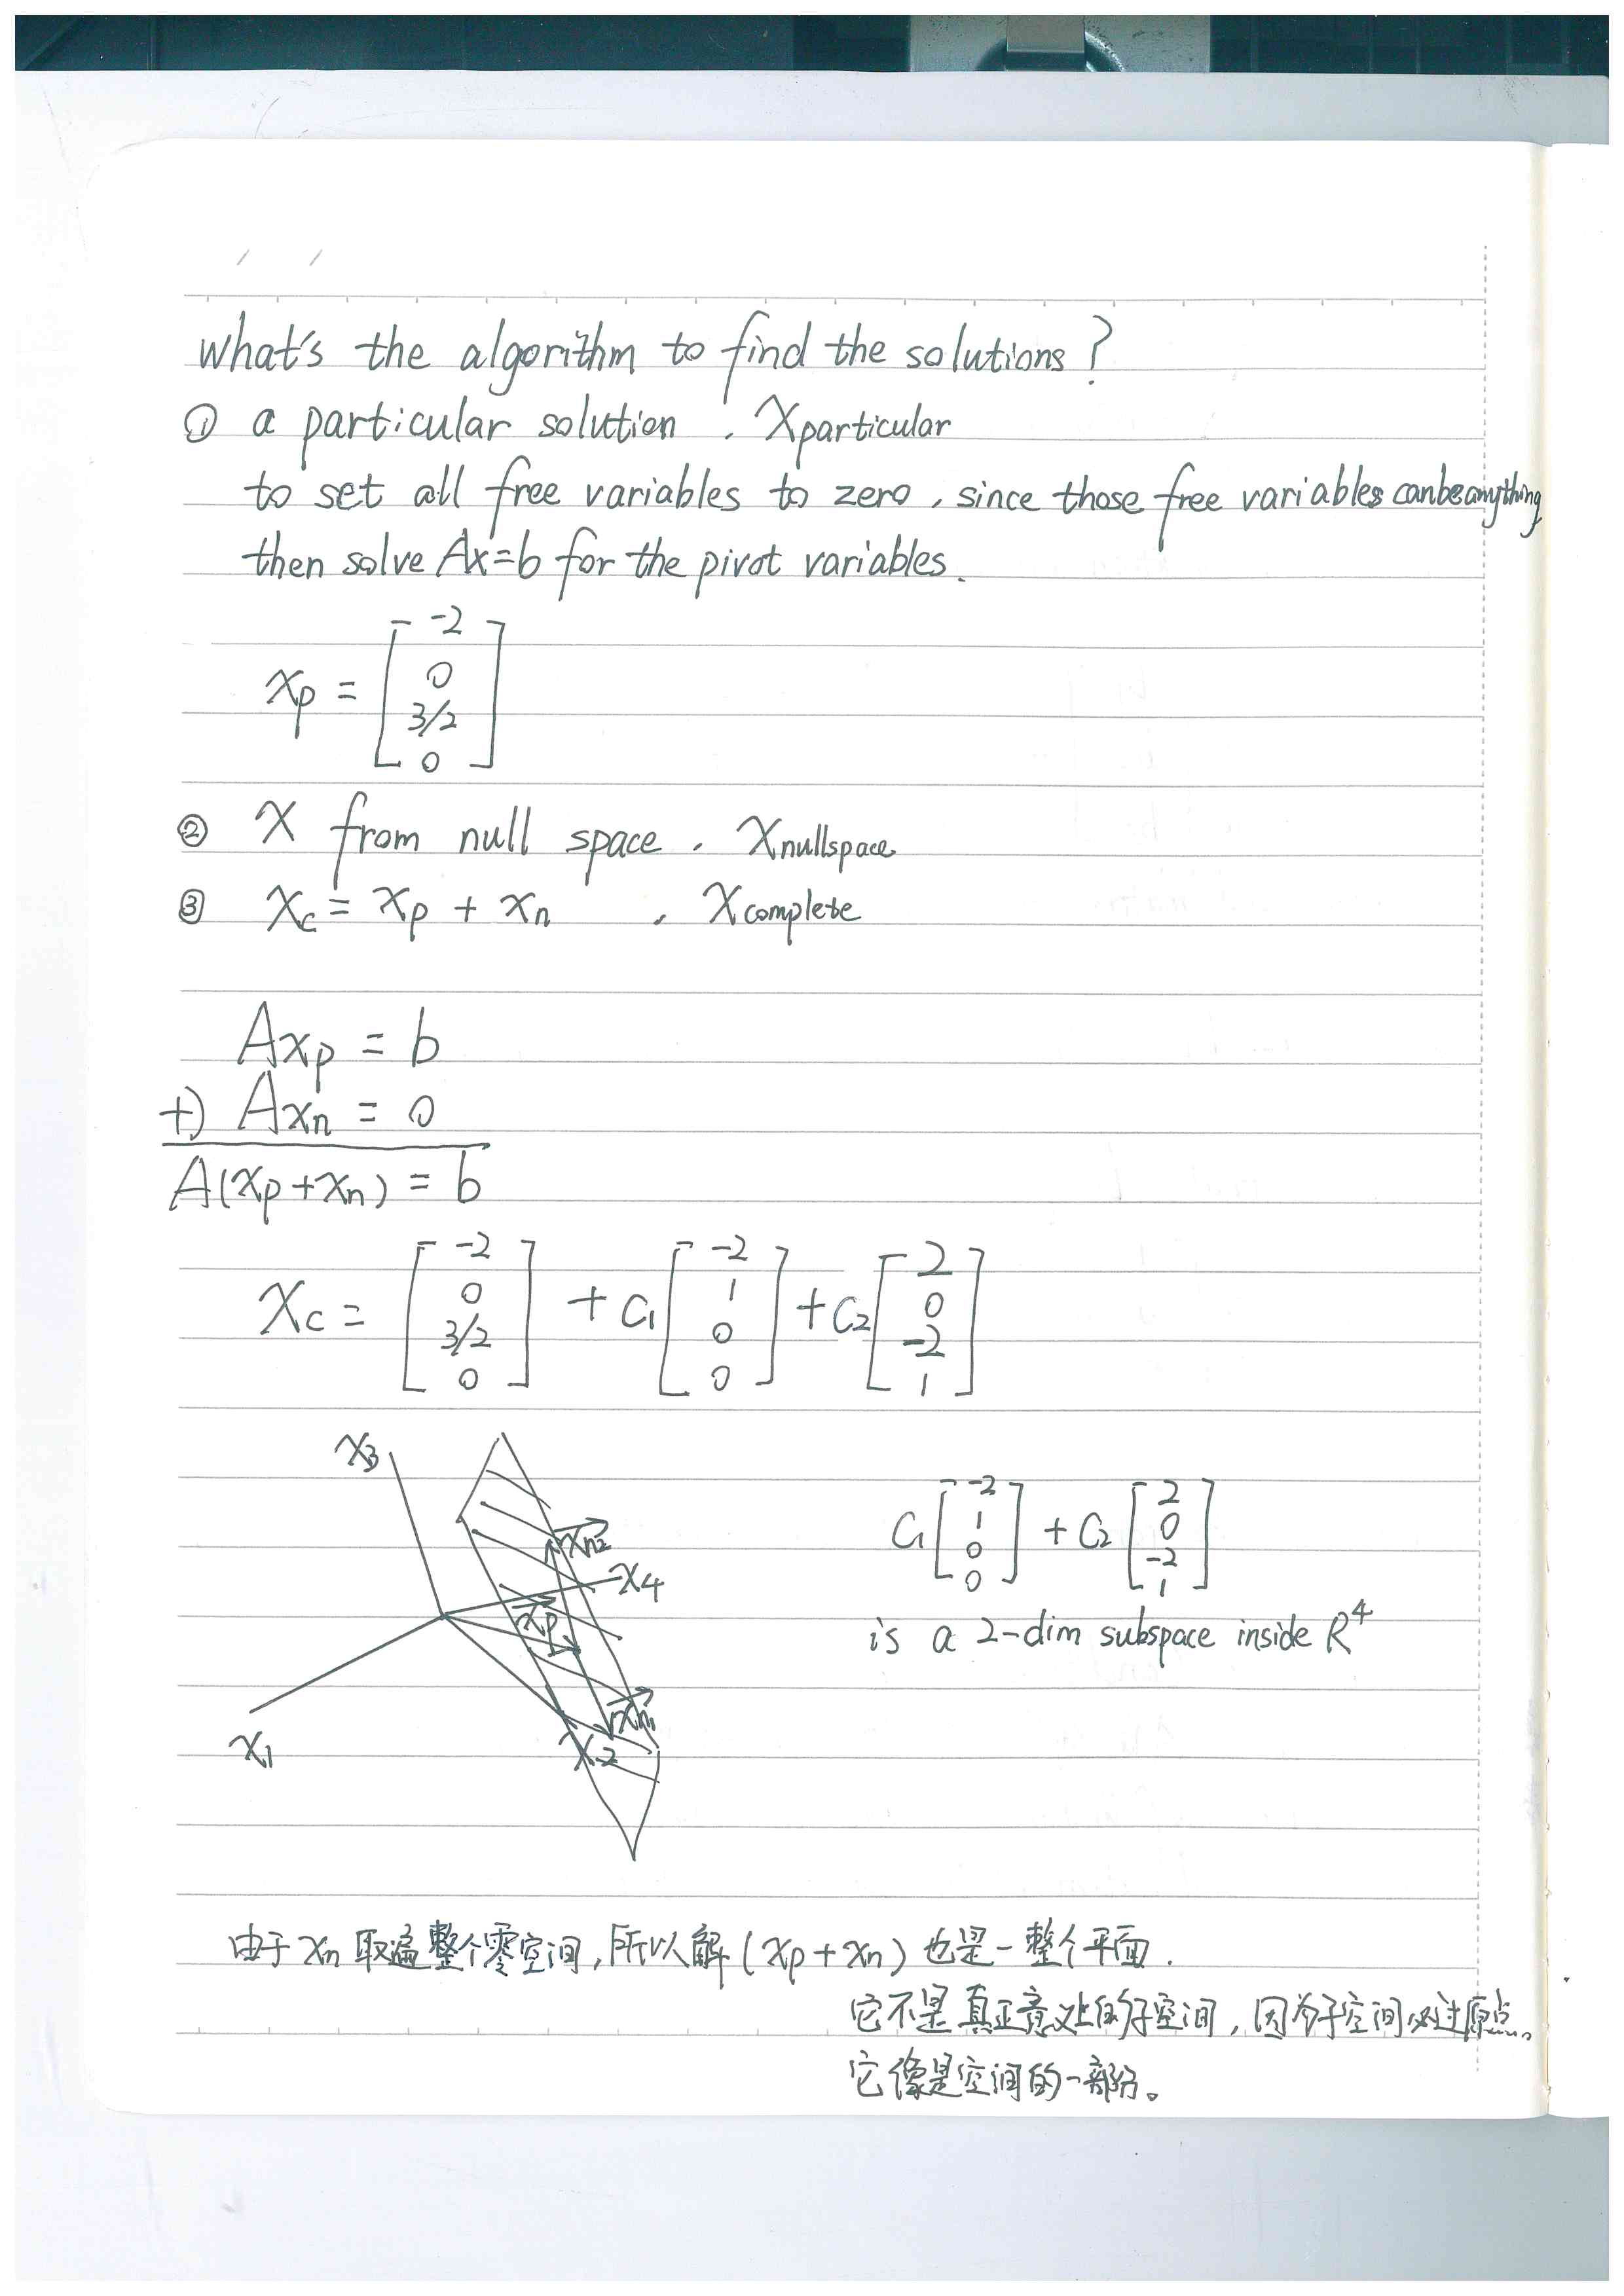 what's the algorithm to find the solutions?
① a particular solution . Xparticular
to set all free variables to zero, since those free variables can be anything
then solve Ax=b for the pivot variables.
xp = [ -2
0
3/2
0 ]
② X from null space . Xnullspace
③ Xc = xp + xn . Xcomplete
Axp = b
+) Axn = 0
A(xp+xn) = b
Xc = [ -2 0 3/2 0 ] + C1 [ -2 1 0 0 ] + C2 [ 2 0 -2 1 ]
x3
xn2
x4
xp
xn1
x2
x1
C1 [ -2 1 0 0 ] + C2 [ 2 0 -2 1 ]
is a 2-dim subspace inside R⁴
由于 xn 取遍整个零空间,所以解(xp+xn)也是一整个平面.
它不是真正意义上的子空间,因为子空间必过原点。
它像是空间的一部分。